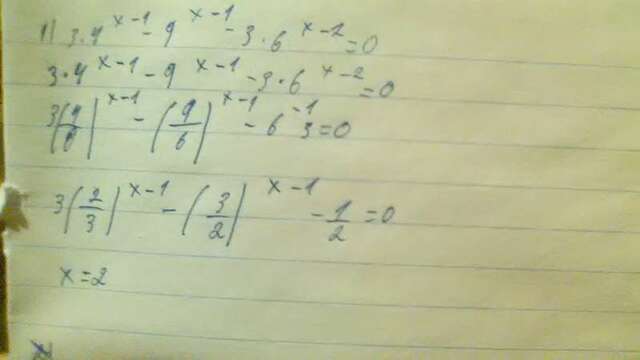 1) 3·4^x-1 - 9^x-1 - 3·6^x-2 = 0
3·4^x-1 - 9^x-1 - 3·6^x-2 = 0
3(4/6)^x-1 - (9/6)^x-1 - 6^-1 3 = 0
3(2/3)^x-1 - (3/2)^x-1 - 1/2 = 0
x = 2